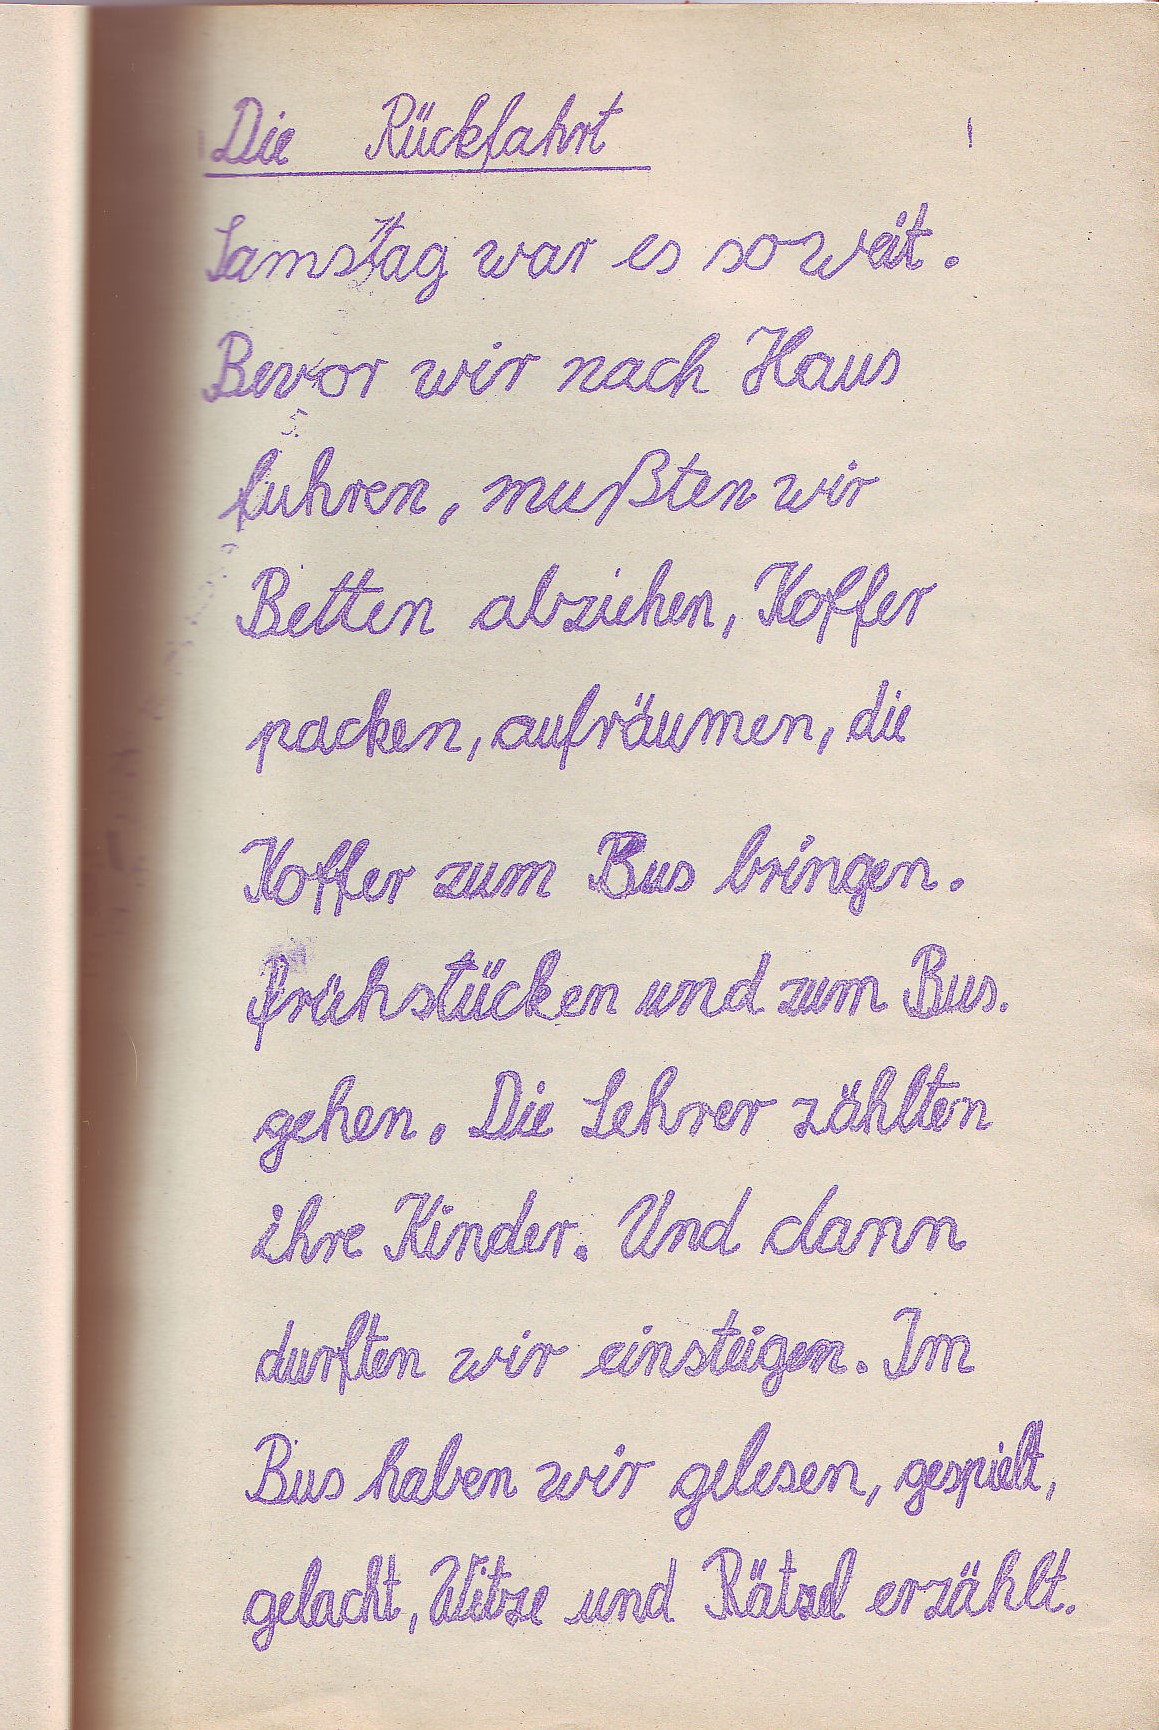 Die Rückfahrt
Samstag war es soweit.
Bevor wir nach Haus
fuhren, mußten wir
Betten abziehen, Koffer
packen, aufräumen, die
Koffer zum Bus bringen.
frühstücken und zum Bus.
gehen. Die Lehrer zählten
ihre Kinder. Und dann
durften wir einsteigen. Im
Bus haben wir gelesen, gespielt,
gelacht, Witze und Rätzel erzählt.